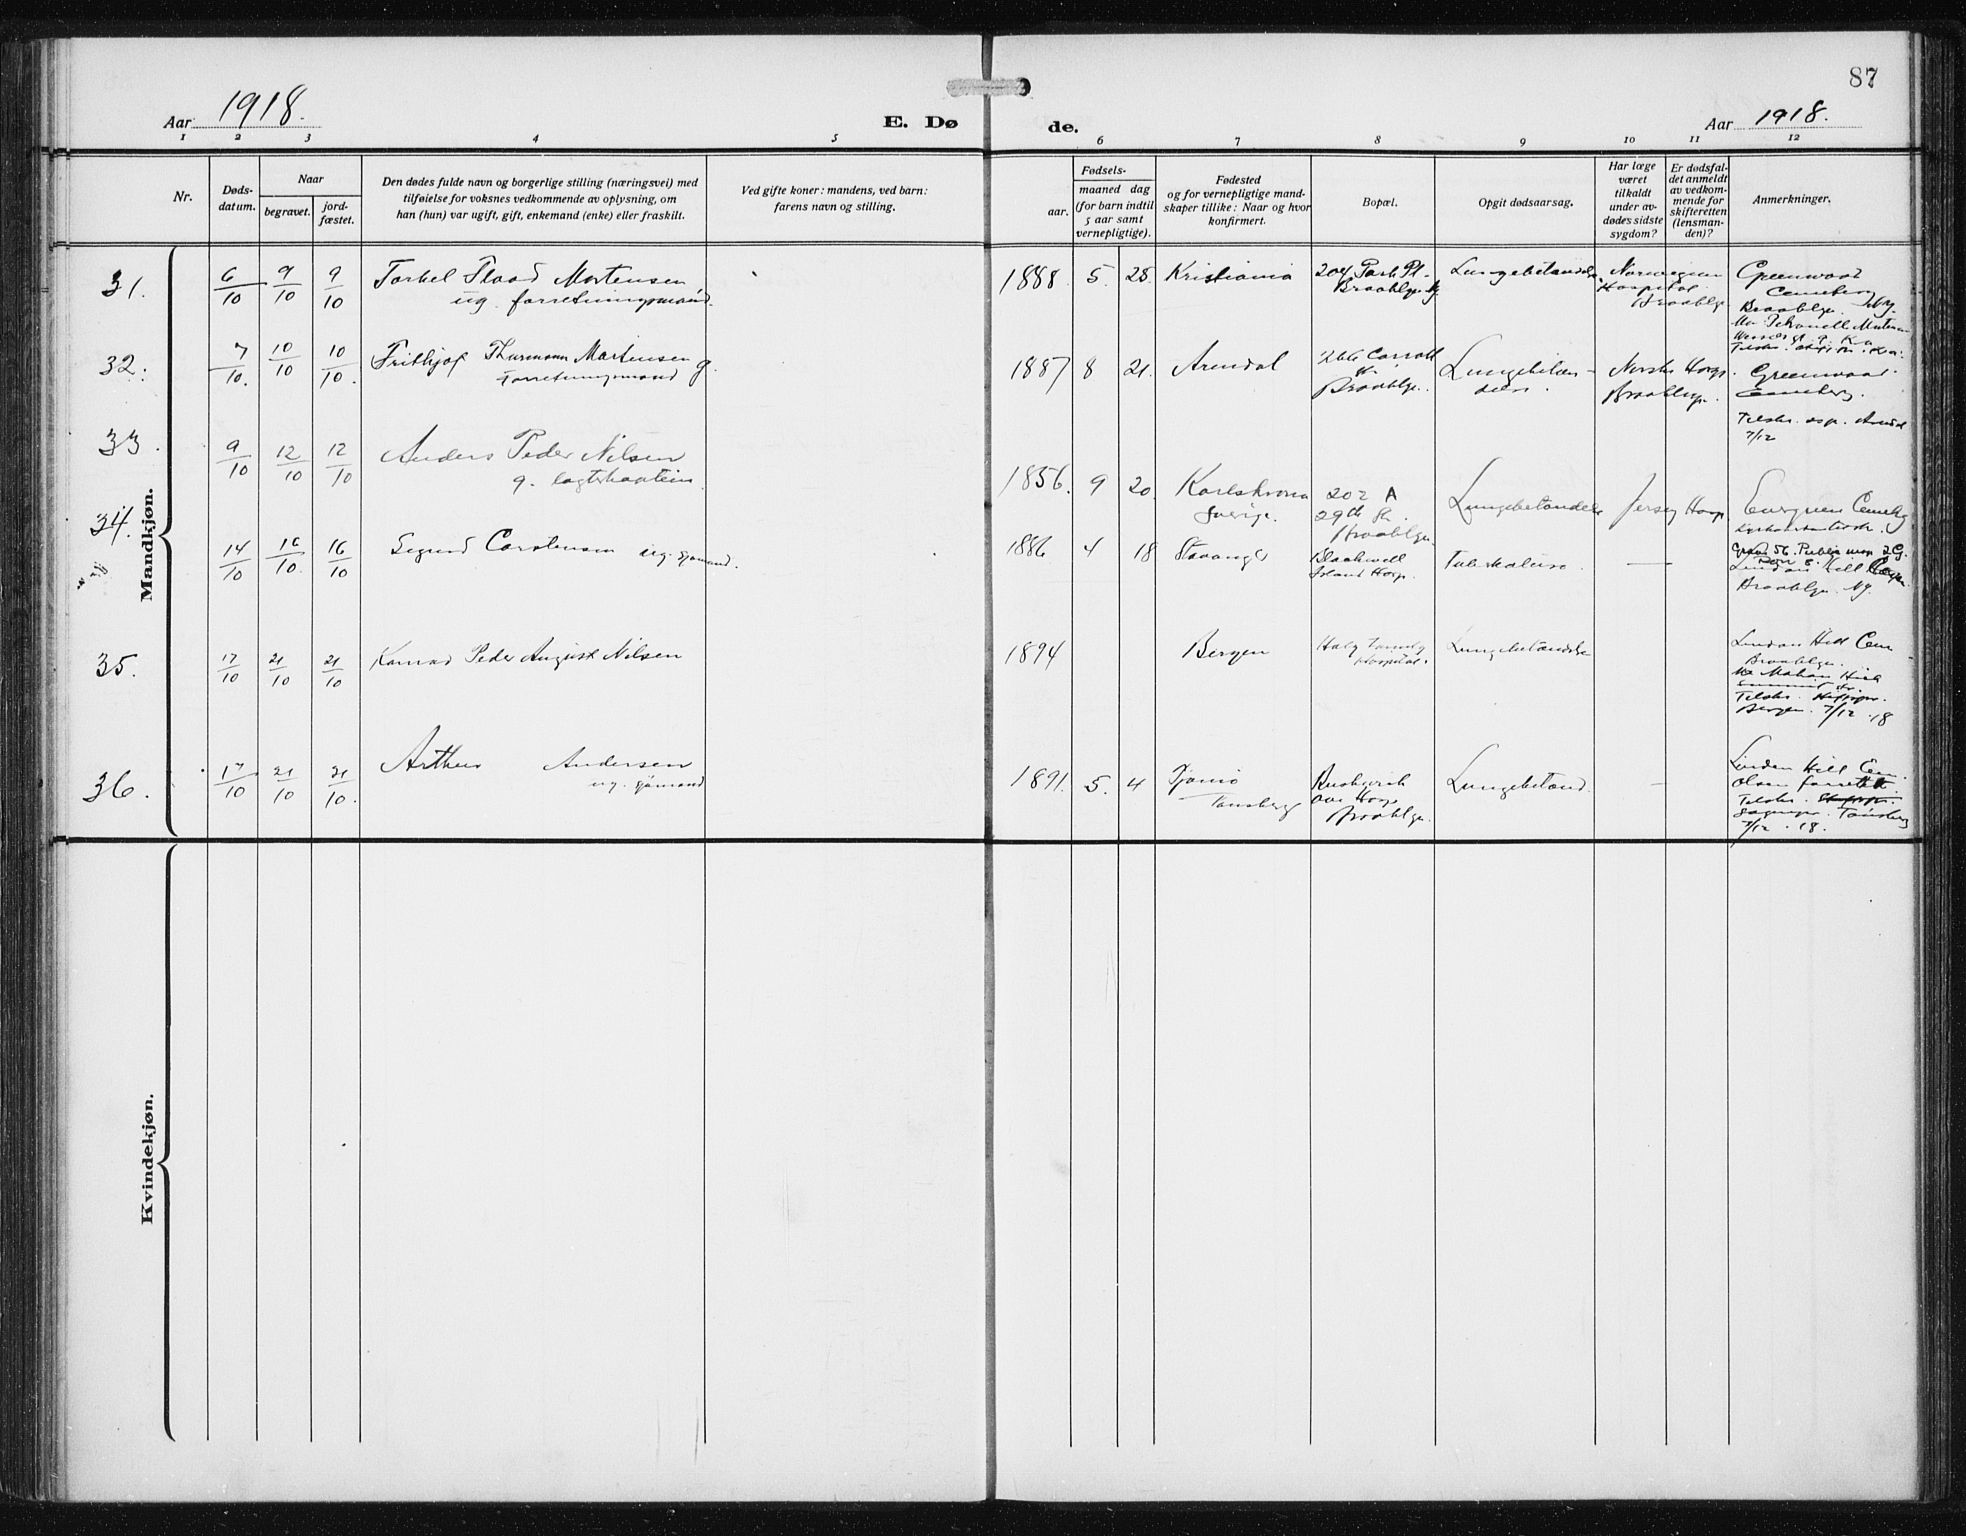 87
Aar 1918.
E. Dø
de.
Aar 1918.
1 2 3 4 5 6 7 8 9 10 11 12
Nr.
Døds-
datum.
Naar
begravet.
jord-
fæstet.
Den dødes fulde navn og borgerlige stilling (næringsvei) med
tilføielse for voksnes vedkommende av oplysning, om
han (hun) var ugift, gift, enkemand (enke) eller fraskilt.
Ved gifte koner: mandens, ved barn:
farens navn og stilling.
Fødsels-
aar.
maaned dag
(for barn indtil
5 aar samt
vernepligtige).
Fødested
og for vernepligtige mand-
skaper tillike: Naar og hvor
konfirmert.
Bopæl.
Opgit dødsaarsag.
Har læge
været
tilkaldt
under av-
dødes sidste
sygdom?
Er dødsfal-
det anmeldt
av vedkom-
mende for
skifteretten
(lensman-
den)?
Anmerkninger.
Mandkjøn.
31. 6/10 9/10 9/10 Torkel Flood Mortensen
ug. forretningsmand.
1888. 5. 28. Kristiania
204 Park Pl.
Brooklyn Ny.
Lungebetændelse
Norwegian
Hospital
Brooklyn
Greenwood
Cemetery
Brooklyn. Ny.
32. 7/10. 10/10 10/10. Frithjof Thormann Mortensen g.
Forretningsmand
1887 8 21. Arendal
266 Carroll
st.
Brooklyn.
Lungebetæn-
delse
Norske Hosp.
Brooklyn.
Greenwood
Cemetery.
Tilskr. Arendal
7/12
33. 9/10 12/10 12/10 Anders Peder Nilsen
g.
1856. 9 20. Karlskrona
Sverige.
202 A
29th St.
Brooklyn.
Lungebetændelse
Jersey Hosp.
Evergreen Cemetery
34. 14/10 16/10. 16/10 Sigurd Carstensen ug. sjømand.
1886 4 18 Stavanger
Blackwell
Island Hosp.
Tuberkulose.
—
Grav 56.
Linden Hill
Brooklyn. Ny.
35. 17/10 21/10 21/10 Konrad Peder August Nilsen
1894 Bergen
Holy Family
Hospital.
Lungebetændelse
Linden Hill Cem
Brooklyn.
Tilskr.
Bergen. 7/12 . 18
36. 17/10 21/10 21/10. Arthur Andersen
ug. sjømand
1891. 5. 4 Tjømø
Tønsberg
Bushwick
Hosp
Brooklyn.
Lungebetænd.
—
Linden Hill Cem.
Olsen
Tilskr.
Tønsberg
7/12 . 18.
Kvindekjøn.